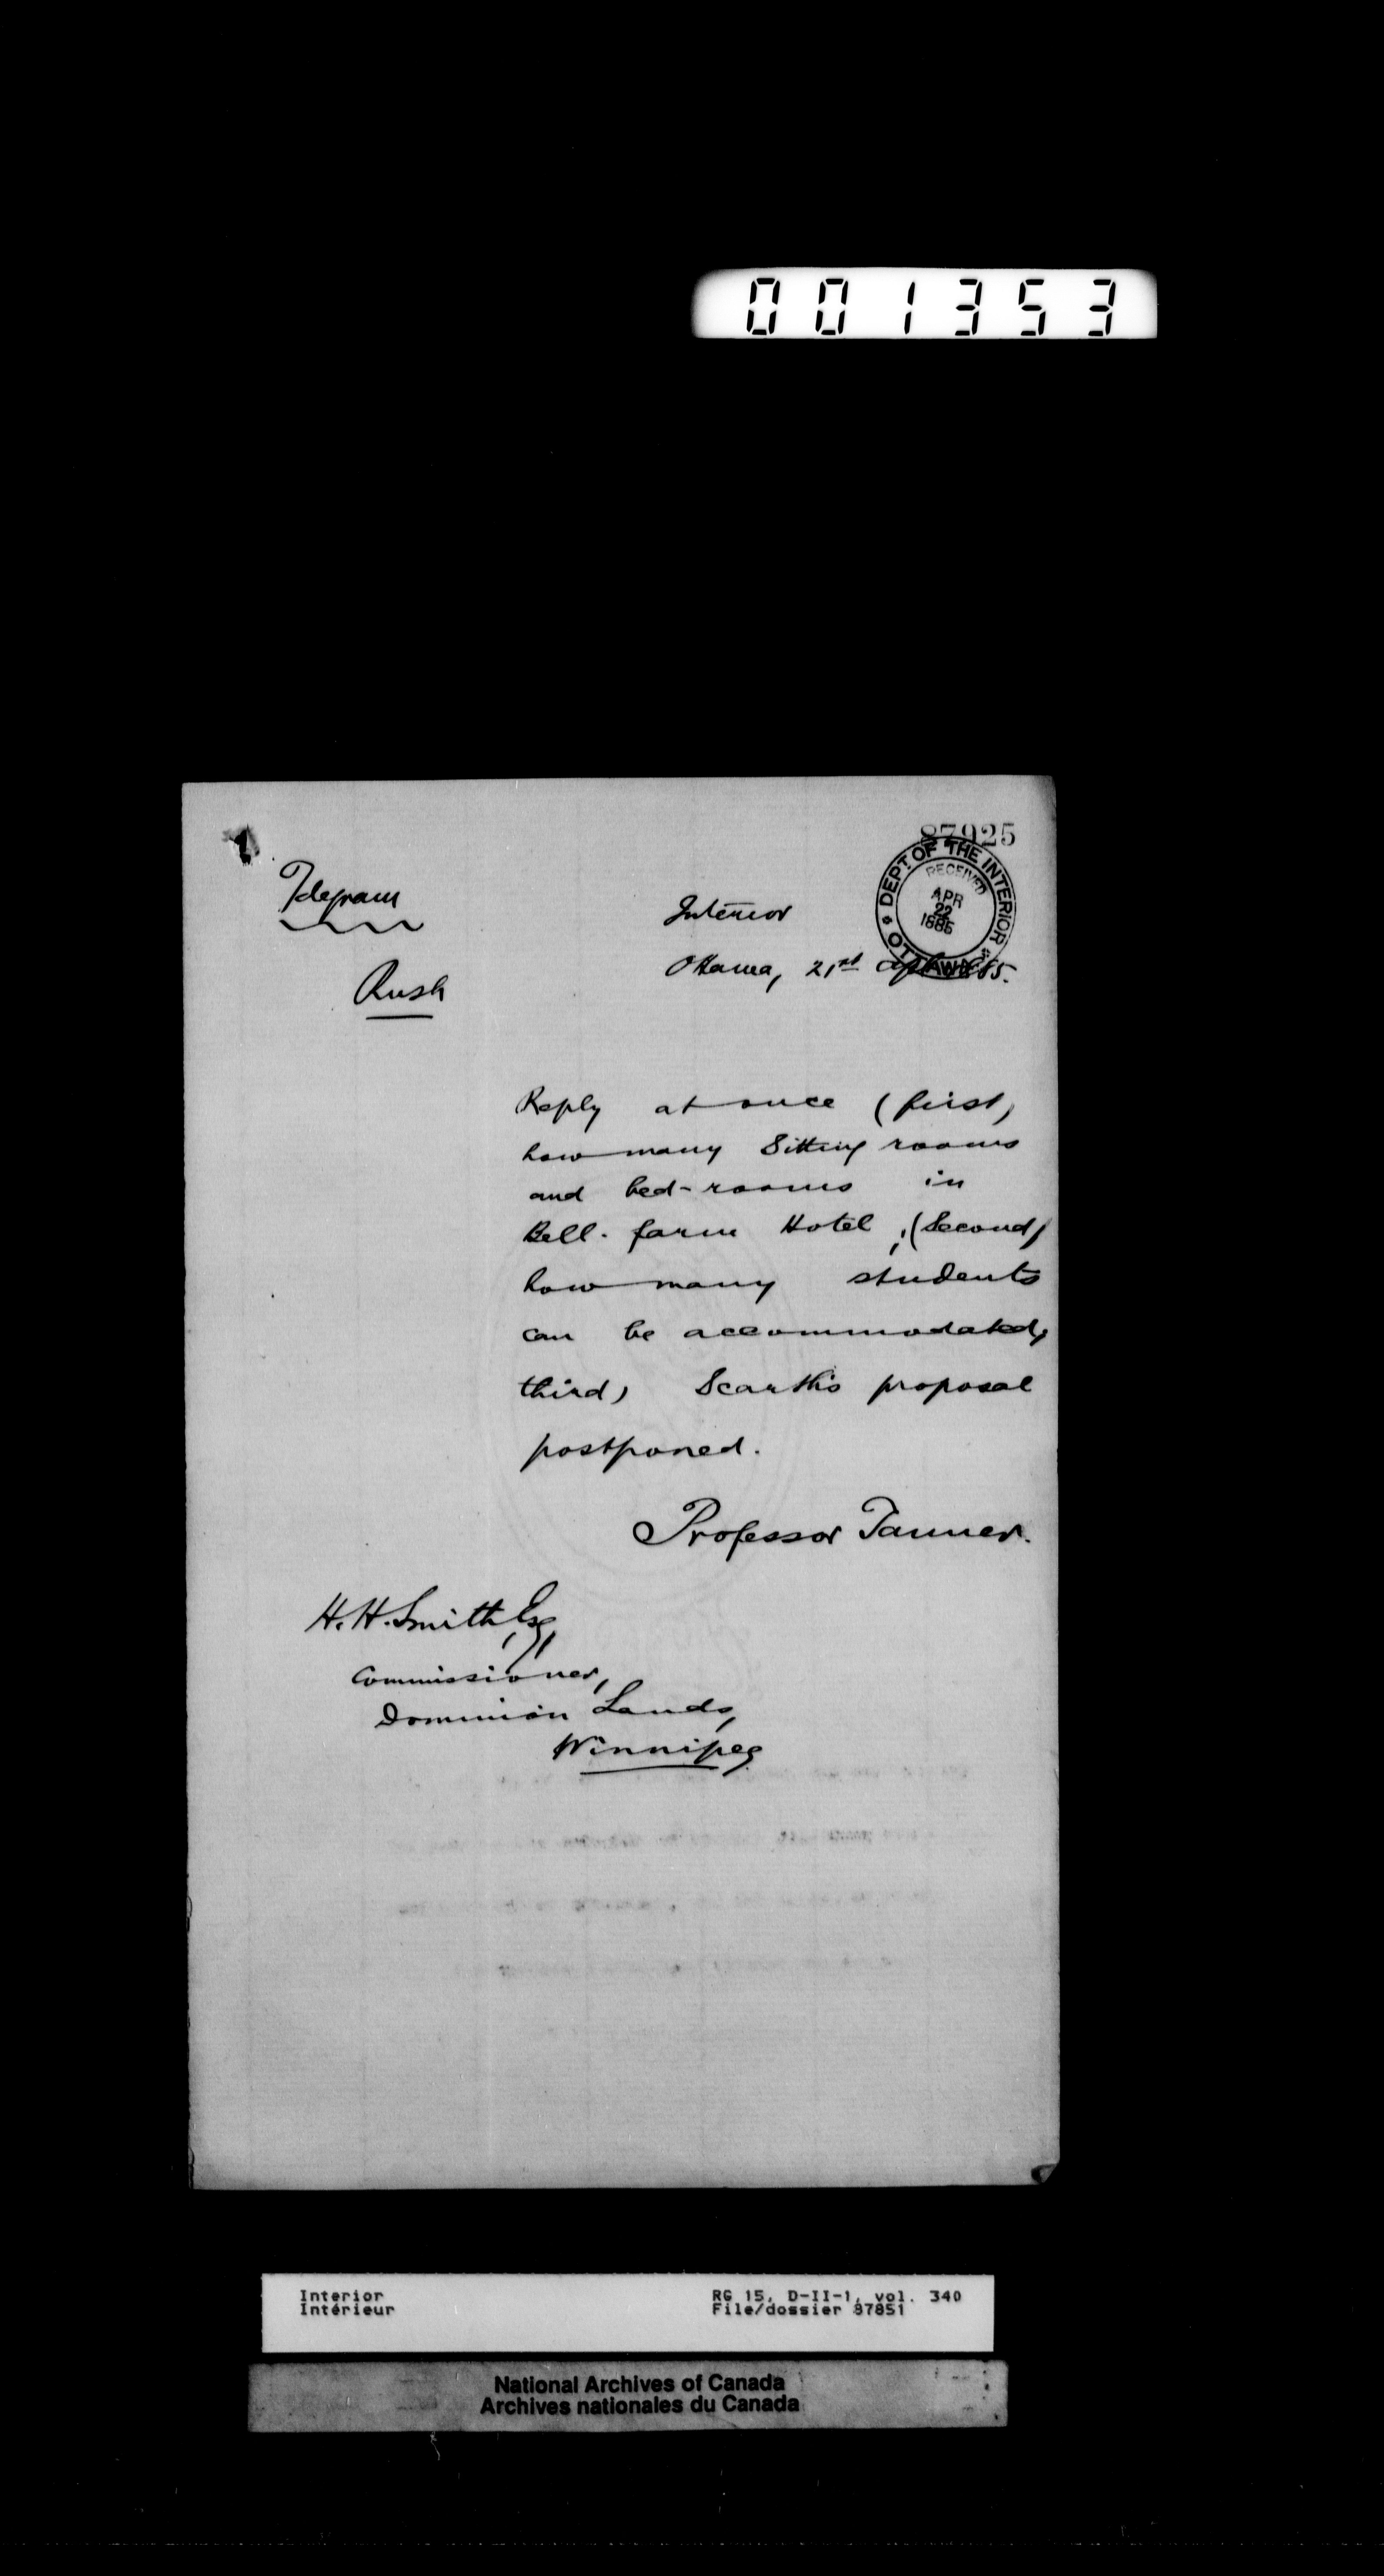 001353
87925
DEPT OF THE INTERIOR
RECEIVED
APR
22
1885
OTTAWA
Telegram
Rush
Interior
Ottawa, 21st Apl 1885.
Reply at once (first,
how many Sitting rooms
and bed-rooms in
Bell-farm Hotel, (Second,
how many students
can be accommodated,
third, Scarth's proposal
postponed.
Professor Tanner.
H. H. Smith, Esq,
Commissioner,
Dominion Lands,
Winnipeg
Interior
Intérieur
RG 15, D-II-1, vol. 340
File/dossier 87851
National Archives of Canada
Archives nationales du Canada